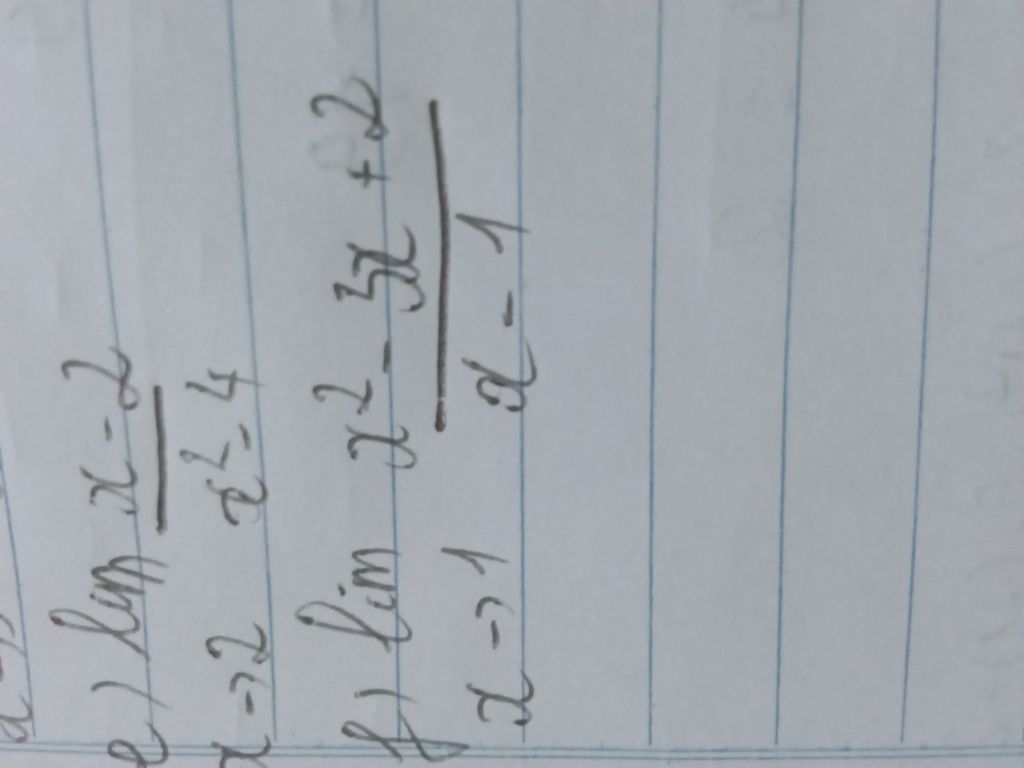 e) lim x - 2
x → 2 x² - 4
f) lim x² - 3x + 2
x → 1 x - 1